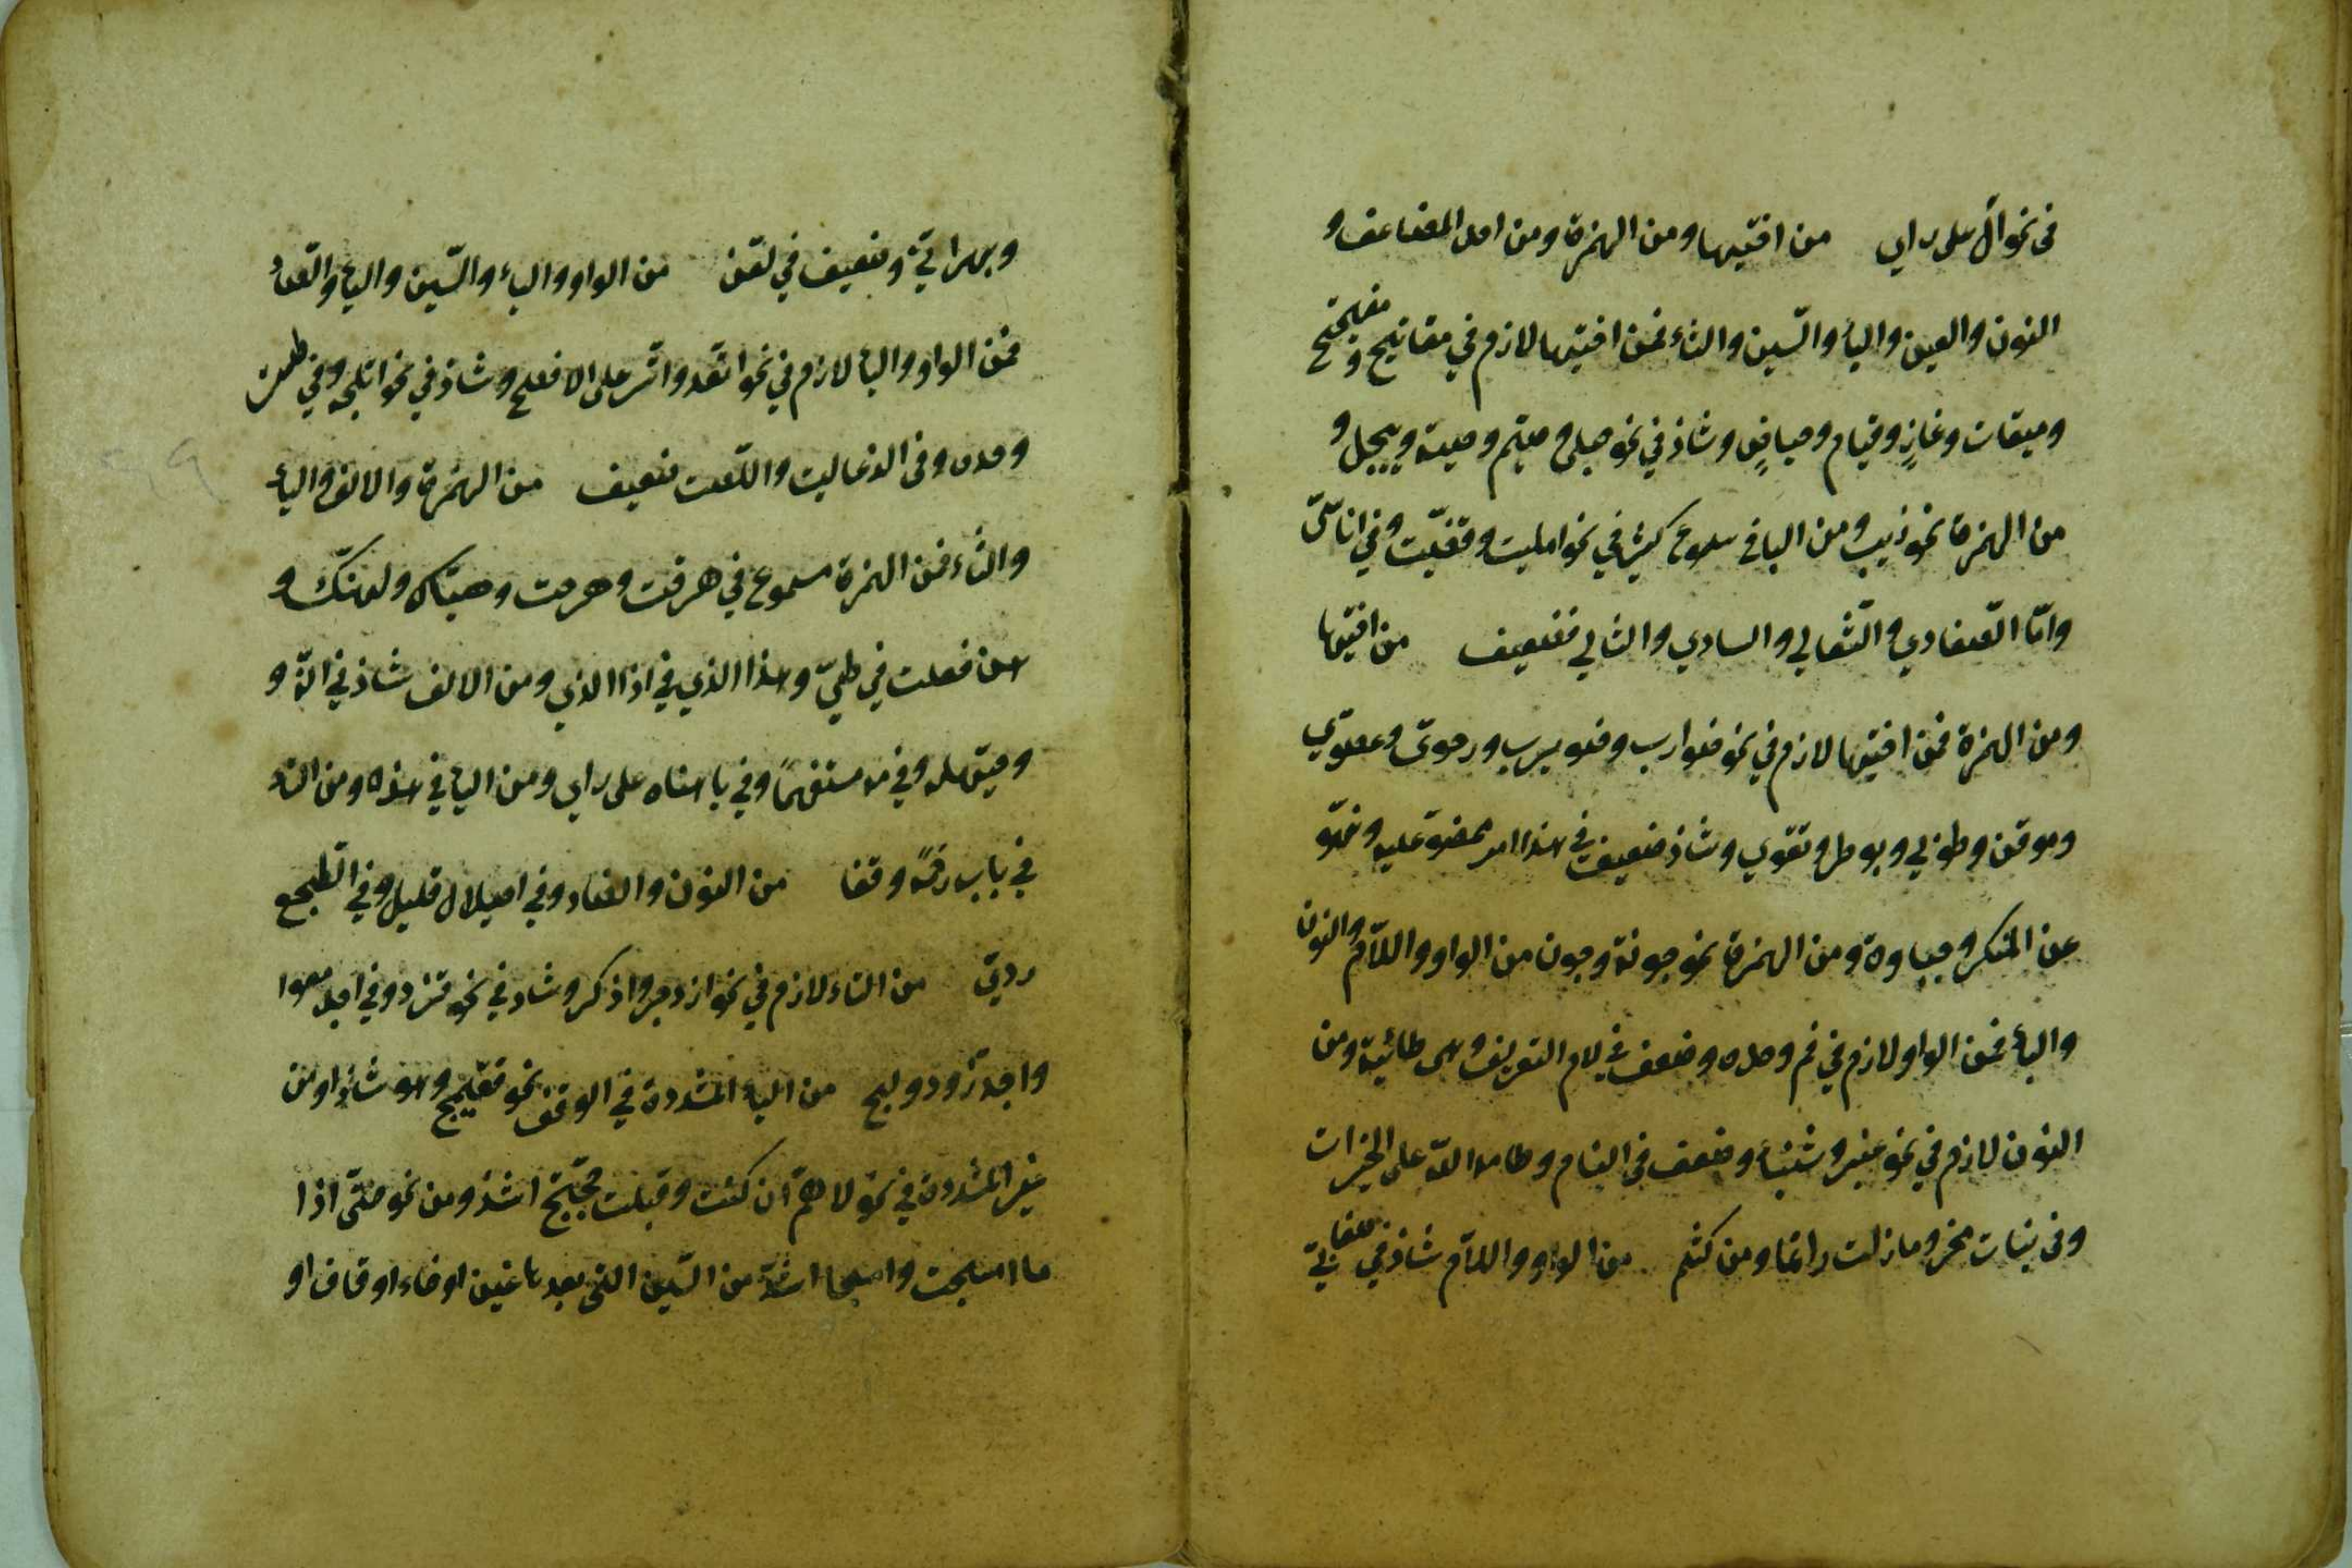 في نحو آل على راي من اختيها ومن الهمزة ومن احد المضاعف و
النون والعين والباء والسّين والثاء فمن اختيها لازم في مفاتيح و مفيتيح
وميقات وغازٍ وقيام وحياض وشاذ في نحو حبلى وصيّم وصبية وييجل و
من الهمزة نحو ذيب ومن الباقي مسموع كثير في نحو امليت وقصّيت وفي اناسّي
وامّا الضفادي والثعالي والسادي والثالي فضعيف من اختيها
ومن الهمزة فمن اختيها لازم في نحو ضوارب وضويرب ورحويّ وعصويّ
وموقن وطوبي وبوطر وتقوي وشاذ ضعيف في هذا امر ممضوّ عليه ونهوّ
عن المنكر وجباوة ومن الهمزة نحو جونة وجون من الواو واللاّم والنون
والباء فمن الواو لازم في فم وحده وضعف في لام التعريف وهي طائية ومن
النون لازم في نحو عنبر وشنباء وضعف في البنام وطامه الله على الخير ات
وفي بنات مخر وما زلت راتما ومن كثم من الواو واللاّم شاذ في صنعاني
وبهراني وضعيف في لعن من الواو والياء والسّين والباء والصاد
فمن الواو والياء لازم في نحو اتعد واتسر على الافصح وشاذ في نحو اتلجه وفي طست
وحده وفي الذعاليت واللصت ضعيف من الهمزة والالف والياء
والتاء فمن الهمزة مسموع في هرقت وهرحت وهيّاك ولهنّك و
هن فعلت في طيّ وهذا الذي في اذا الذي ومن الالف شاذ في انّه و
وحيّهله وفي مه مستفهماً وفي يا هناه على راي ومن الياء في هذه ومن التاء
في باب رحمة وقفا من النون والضاد وفي اصيلال قليل وفي الطجع
رديّ من التاء لازم في نحو ازدجر واذكر وشاذ في نحو فزد وفي اجدمعوا
واجدزّ ودولج من الياء المشددة في الوقف نحو فقيمج وهو شاذ ومن
غير المشددة في نحو لاهمّ ان كنت قبلت حجّتج اشذ ومن نحو حتّى اذا
ما امسجت وامسجا اشذّ من السّين التي بعدها غين او خاء او قاف او